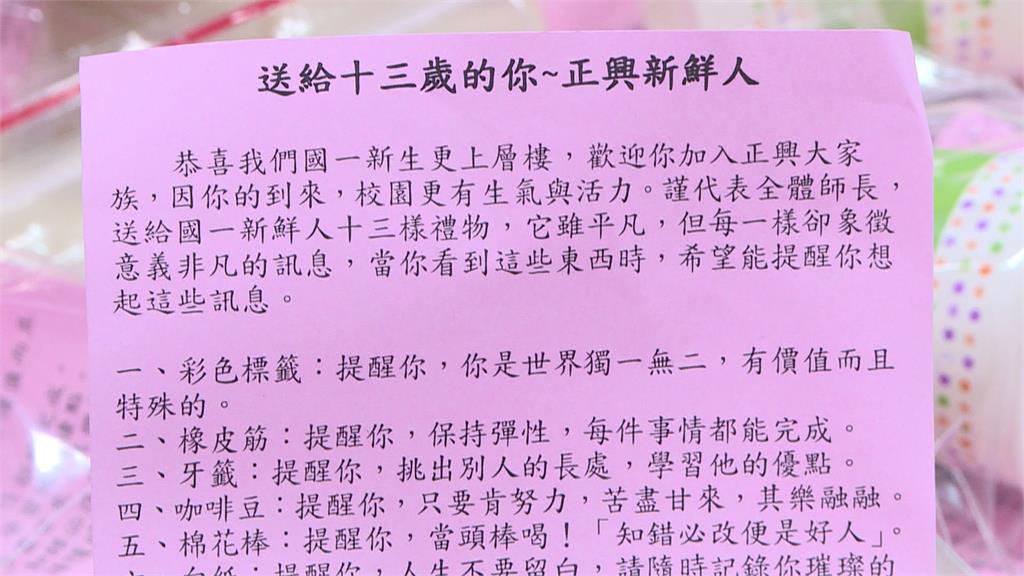 送給十三歲的你~正興新鮮人
恭喜我們國一新生更上層樓，歡迎你加入正興大家
族，因你的到來，校園更有生氣與活力。謹代表全體師長，
送給國一新鮮人十三樣禮物，它雖平凡，但每一樣卻象徵
意義非凡的訊息，當你看到這些東西時，希望能提醒你想
起這些訊息。
一、彩色標籤：提醒你，你是世界獨一無二，有價值而且
特殊的。
二、橡皮筋：提醒你，保持彈性，每件事情都能完成。
三、牙籤：提醒你，挑出別人的長處，學習他的優點。
四、咖啡豆：提醒你，只要肯努力，苦盡甘來，其樂融融。
五、棉花棒：提醒你，當頭棒喝！「知錯必改便是好人」。
六、白紙：提醒你，人生不要留白，請隨時記錄你璀璨的